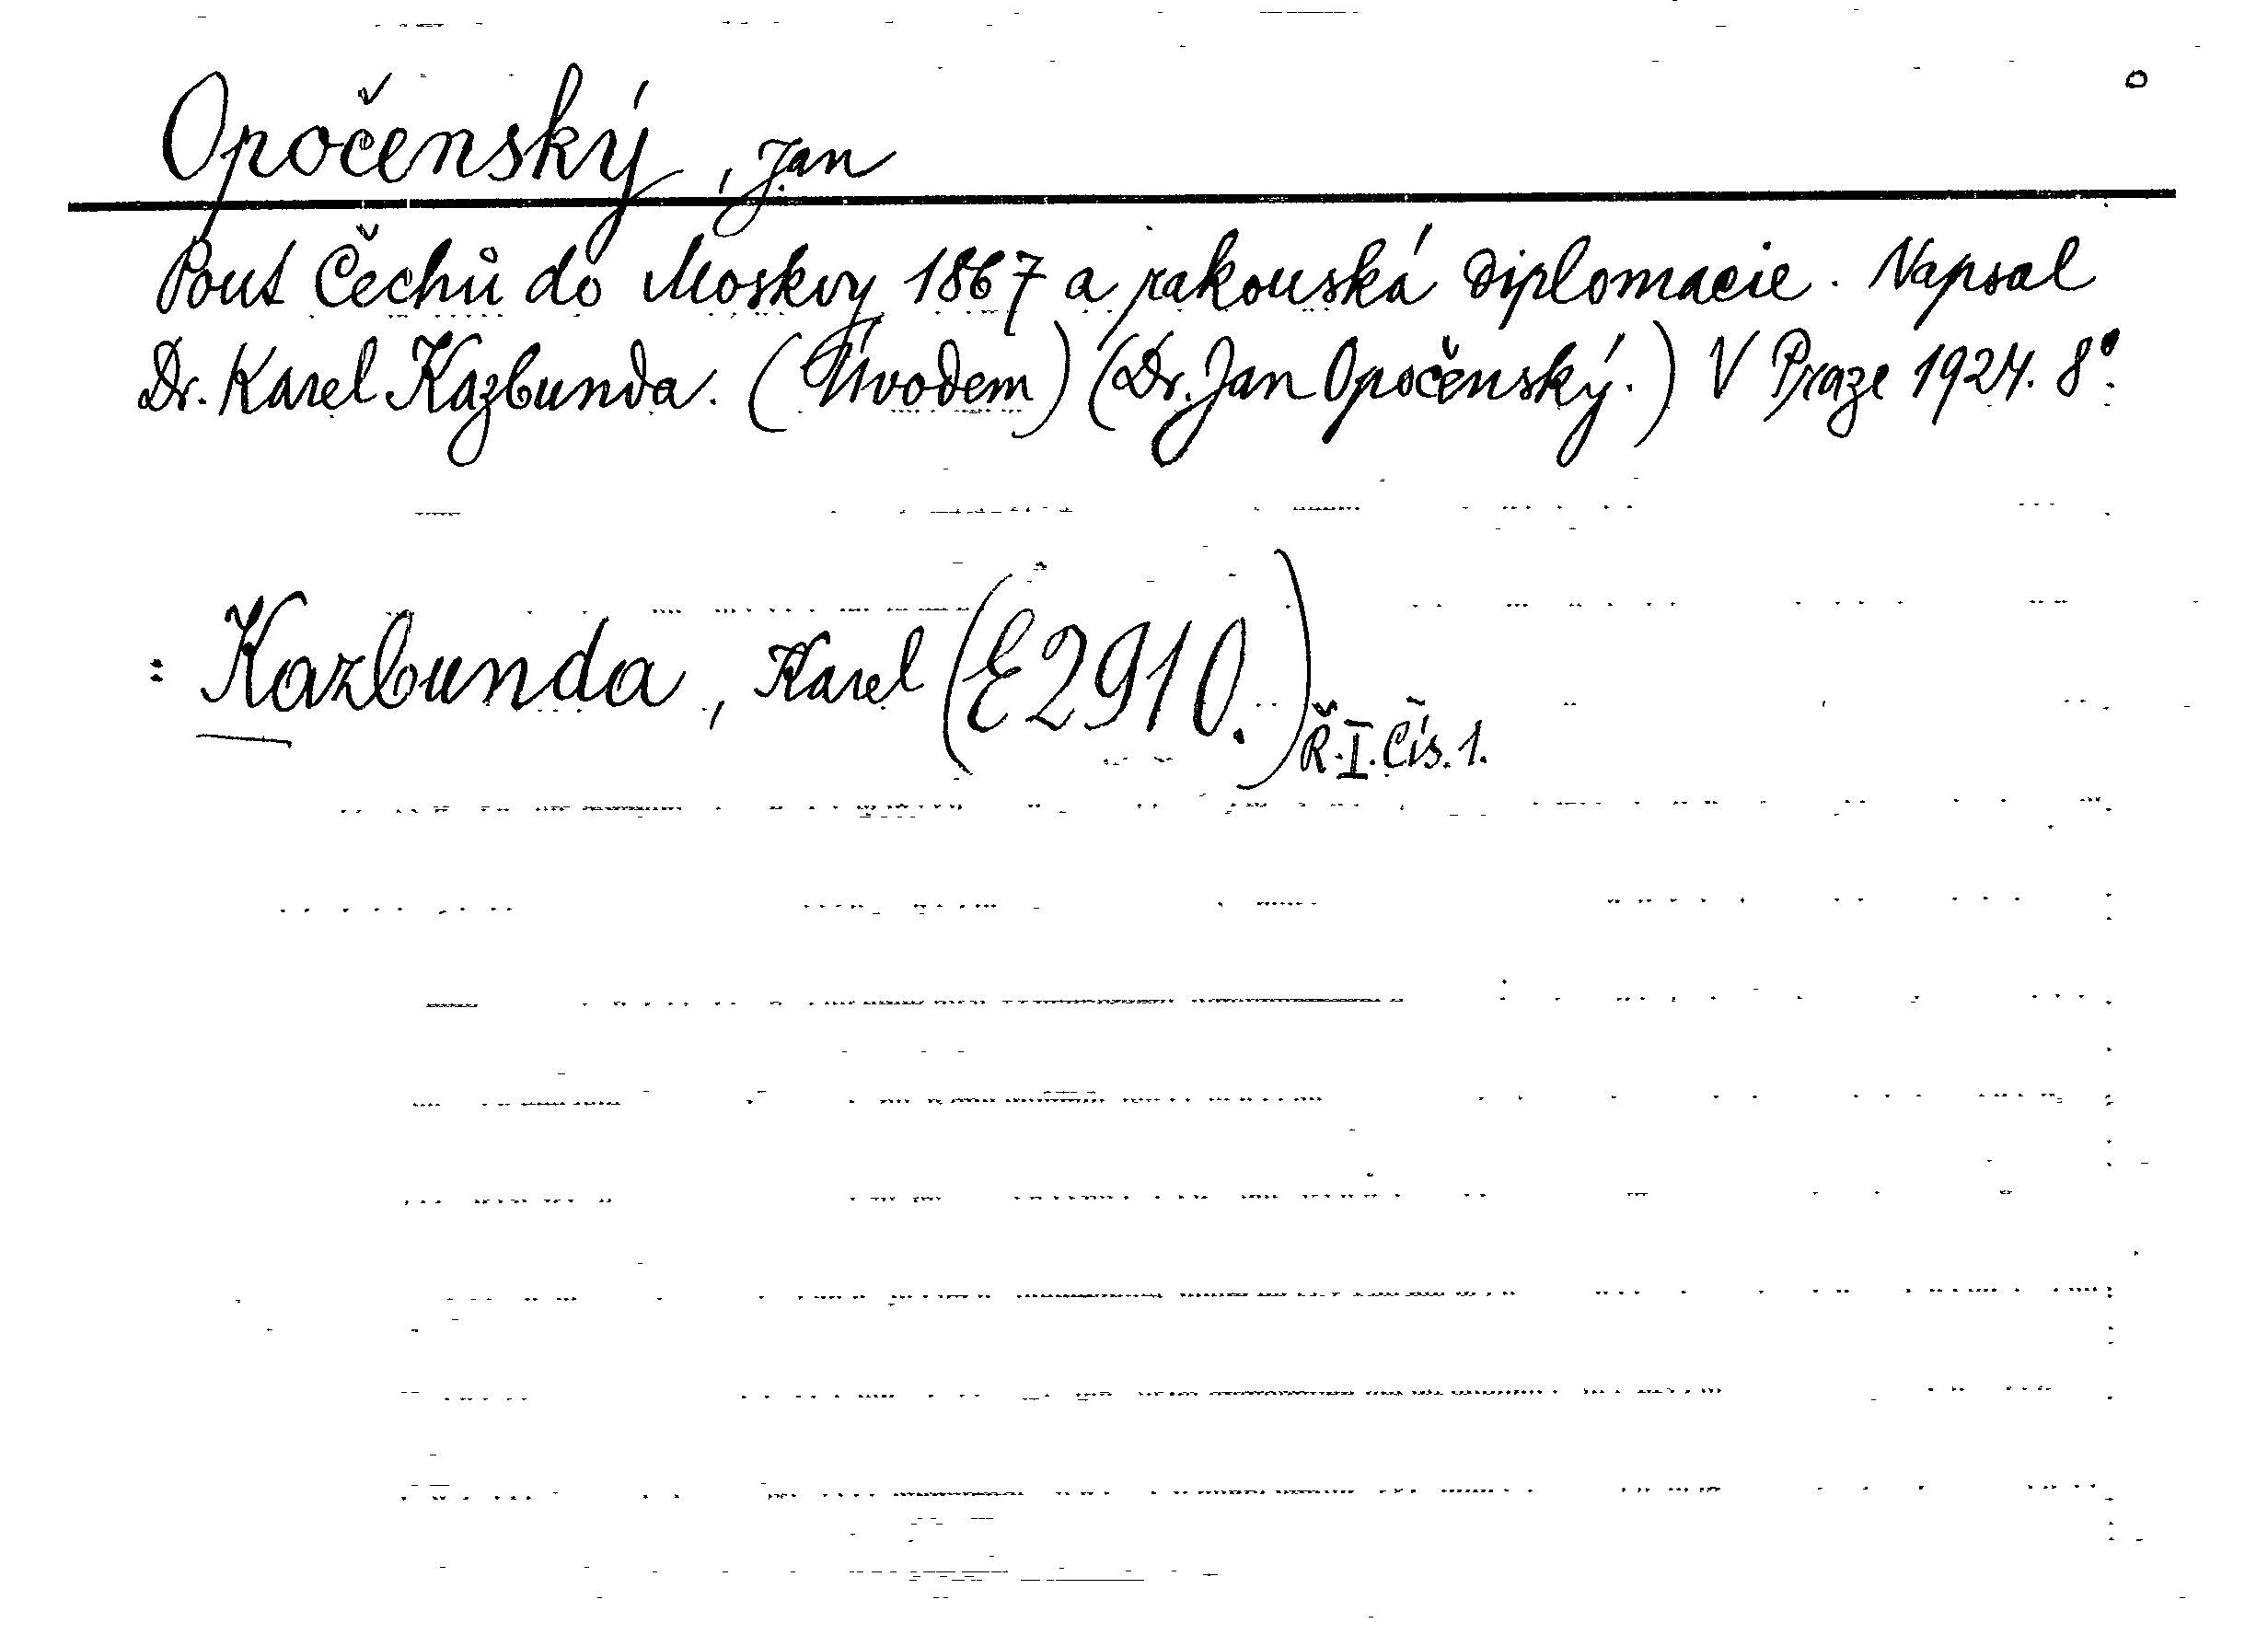 Opočenský, Jan
Pout Čechů do Moskvy 1867 a rakouská diplomacie. Napsal
Dr. Karel Kazbunda. (Úvodem) (Dr. Jan Opočenský.) V Praze 1924. 8°.
: Kazbunda, Karel (E 2910.)
Ř. I. Čís. 1.